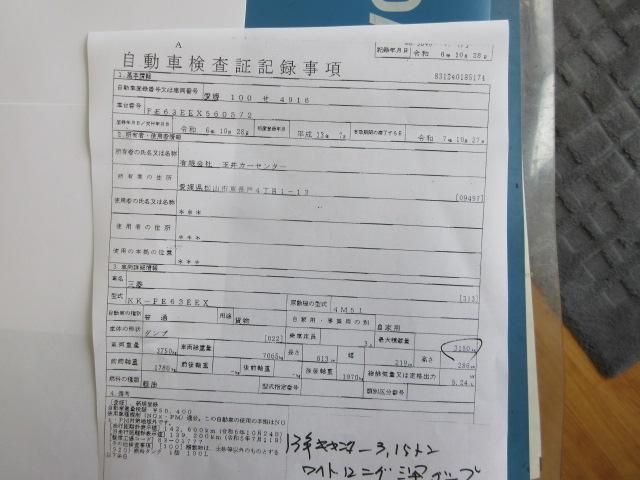 A
記録年月日 令和 6年10月28日
自動車検査証記録事項
831240185174
1.基本情報
自動車登録番号又は車両番号 愛媛 100 せ 4916
車台番号 FE63EEX560572
登録年月日/交付年月日 令和 6年10月28日 初度登録年月 平成13年 7月 有効期間の満了する日 令和 7年10月27日
2.所有者・使用者情報
所有者の氏名又は名称 有限会社 玉井カーセンター
所有者の住所 愛媛県松山市東長戸4丁目1-13 [09497]
使用者の氏名又は名称 ***
使用者の住所 ***
使用の本拠の位置 ***
3.車両詳細情報
車名 三菱 [313]
型式 KK-FE63EEX 原動機の型式 4M51
自動車の種別 普通 用途 貨物 自家用・事業用の別 自家用
車体の形状 ダンプ [022] 乗車定員 3人 最大積載量 3150kg
車両重量 3750kg 車両総重量 7065kg 長さ 613cm 幅 219cm 高さ 286cm
前前軸重 1780kg 前後軸重 -kg 後前軸重 -kg 後後軸重 1970kg 総排気量又は定格出力 5.24L
燃料の種類 軽油 型式指定番号 類別区分番号
4.備考
[登録] 新規登録
自動車重量税額 ¥50,400
142,600km (令和6年10月24日)
139,200km (令和5年7月11日)
13年キャンター3,15トン